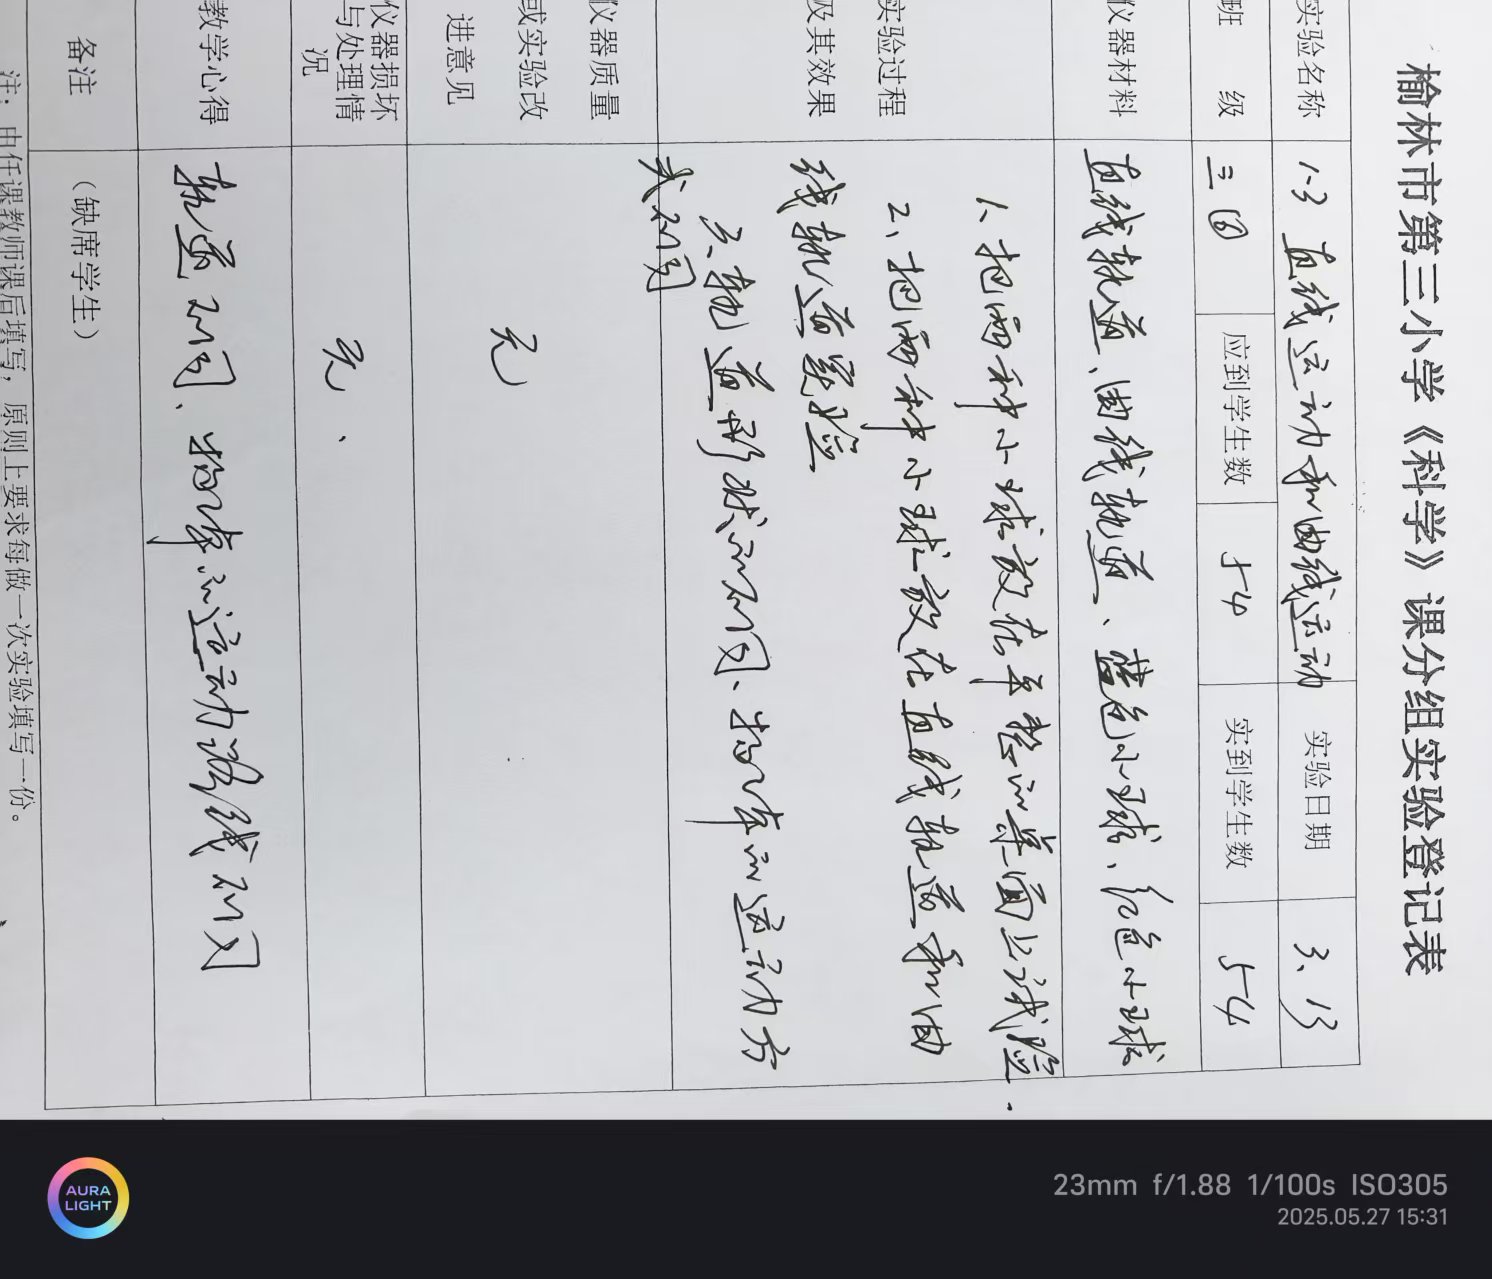 榆林市第三小学《科学》课分组实验登记表
实验名称 1-3 直线运动和曲线运动 实验日期 3、13
班 级 三四 应到学生数 54 实到学生数 54
仪器材料 直线轨道、曲线轨道、蓝色小球、红色小球
实验过程
及其效果
1、把两种小球放在平整的桌面上试验
2、把两种小球放在直线轨道和曲
线轨道实验
3、轨道形状的不同、物体的运动方
式不同
仪器质量
或实验改
进意见
无
仪器损坏
与处理情
况
无、
教学心得 轨道不同、物体的运动路线不同
备注 （缺席学生）
注：由任课教师课后填写，原则上要求每做一次实验填写一份。
AURA
LIGHT
23mm f/1.88 1/100s ISO305
2025.05.27 15:31